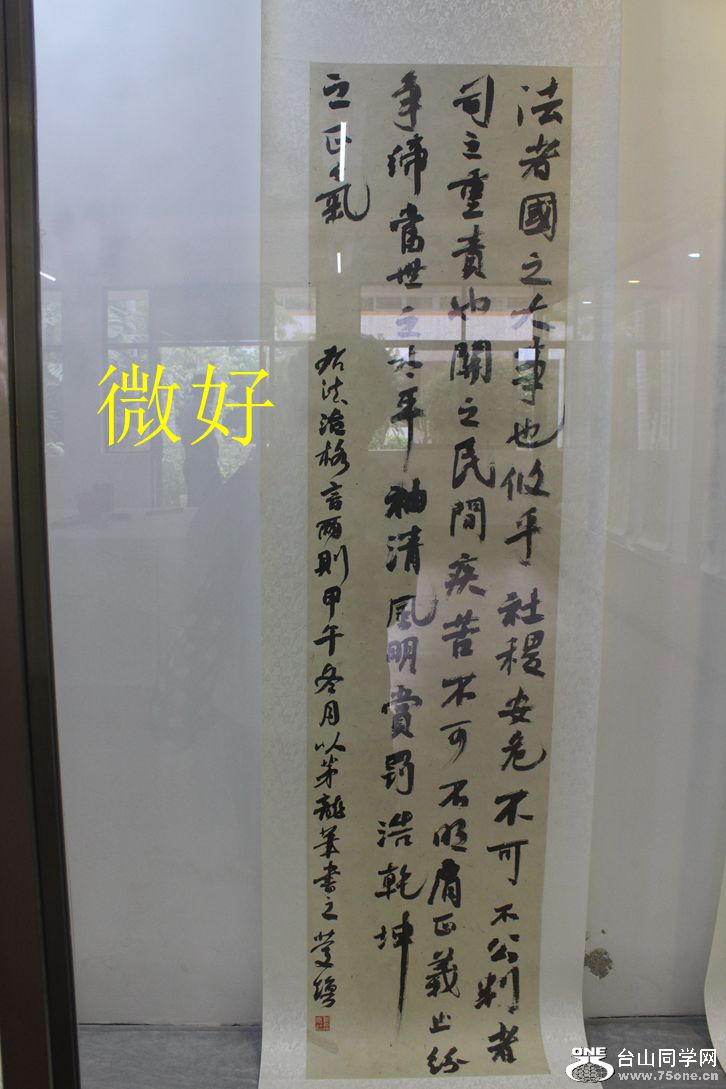 法者國之大事也攸乎社稷安危不可不公判者
司之重責也關之民間疾苦不可不明肩正義止紛
爭締當世之太平袖清風明賞罰浩乾坤
之正氣
右法治格言兩則甲午冬月以茅龍筆書之
微好
ONE
台山同学网
www.75one.cn